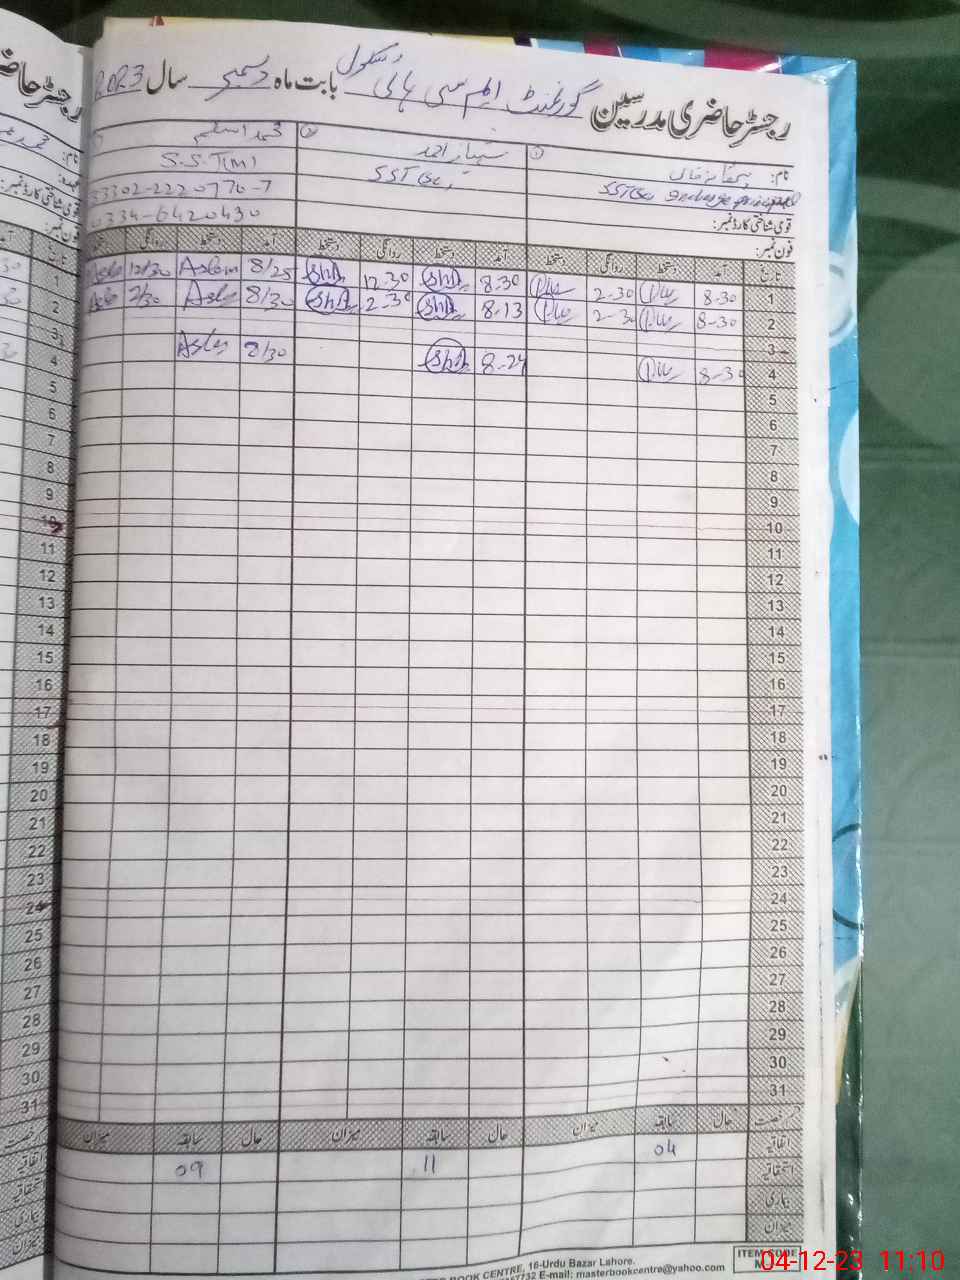 رجسٹر حاضری مدرسین گورنمنٹ ایم سی ہائی سکول بابت ماہ دسمبر سال 2023
نام:
SST(Sc) Incharge principal
قومی شناختی کارڈ نمبر:
فون نمبر:
شہباز احمد
SST(Sc)
محمد اسلم
S.S.T(M)
33302-2220776-7
0334-6420430
تاریخ آمد دستخط روانگی دستخط آمد دستخط روانگی دستخط آمد دستخط روانگی دستخط
1 8-30 2-30 8.30 ShA 12.30 ShA 8/25 Aslam 12/30
2 8-30 2-30 8-13 ShA 2.30 ShA 8/30 2/30
3
4 8-30 8-24 ShA 8/30
5
6
7
8
9
10
11
12
13
14
15
16
17
18
19
20
21
22
23
24
25
26
27
28
29
30
31
رخصت حال سابقہ میزان حال سابقہ میزان حال سابقہ میزان
اتفاقیہ 04 11 09
استحقاقیہ
بیماری
میزان
BOOK CENTRE, 16-Urdu Bazar Lahore.
7732 E-mail: masterbookcentre@yahoo.com
ITEM CODE
04-12-23 11:10